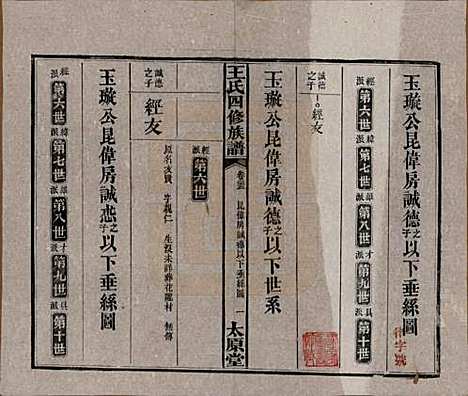 玉璇公昆偉房誠德之子以下垂絲圖
經派 第六世 緯派 第七世 雄派 第八世 才派 第九世 具派 第十世
誠德之子 經友
玉璇公昆偉房誠德之子以下世系
王氏四修族譜 卷 昆偉房誠 以下垂絲圖 一 太原堂
經派 第六世
誠德之子 經友
原名友 字親仁 生沒未詳葬花龍村 無傳
玉璇公昆偉房誠 之子以下垂絲圖
經派 第六世 緯派 第七世 雄派 第八世 才派 第九世 具派 第十世
字號